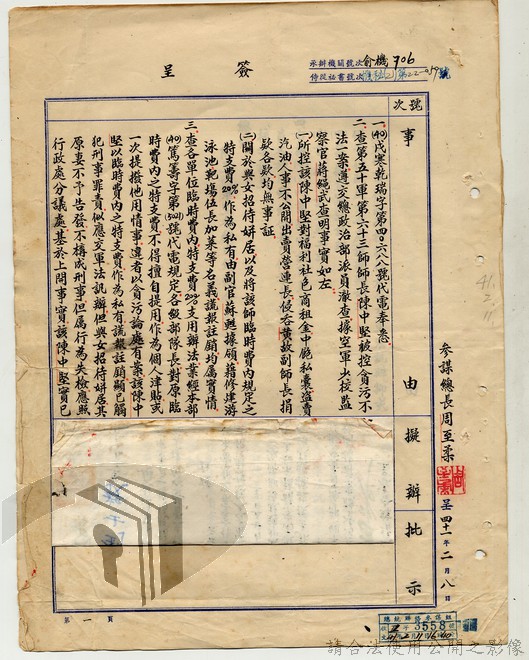 簽呈
承辦機關號次 俞機 706
侍從祕書號次
號次
事由
擬辦
批示
一、(40)戌寒乾瑞字第四○六八號代電奉悉
二、查第五十軍第六十三師師長陳中堅被控貪污不
法一案遵交總政治部派員澈查據空軍少校監
察官蔣繩武查明事實如左
(一)所控該陳中堅對福利社色商租金中飽私囊盜賣
汽油人事不公開出賣營連長侵吞黃故副師長捐
款各欵均無事証
(二)關於與女招待姘居以及將該師臨時費內規定之
特支費20%作為私有由副官蘇魁據領藉修建游
泳池靶場伍長加菜等名義謊報註銷均屬實情
三、查各單位臨時費內特支費20%支用辦法業經本部
(40)篤籌字第(501)號代電規定各級部隊長對原臨
時費內之特支費不得擅自提用作為個人津貼或
一次提撥他用情事違者以貪污論處有案該陳中
堅以臨時費內之特支費作為私有謊報註銷顯已觸
犯刑事罪責似應交軍法訊辦但與女招待姘居其
原妻不予告發不構成刑事但屬行為失檢應照
行政處分議處基於上開事實該陳中堅實已
參謀總長周至柔
呈四十一年二月八日
41.
2.
11
第一頁
總統府
3558
請合法使用公開之影像